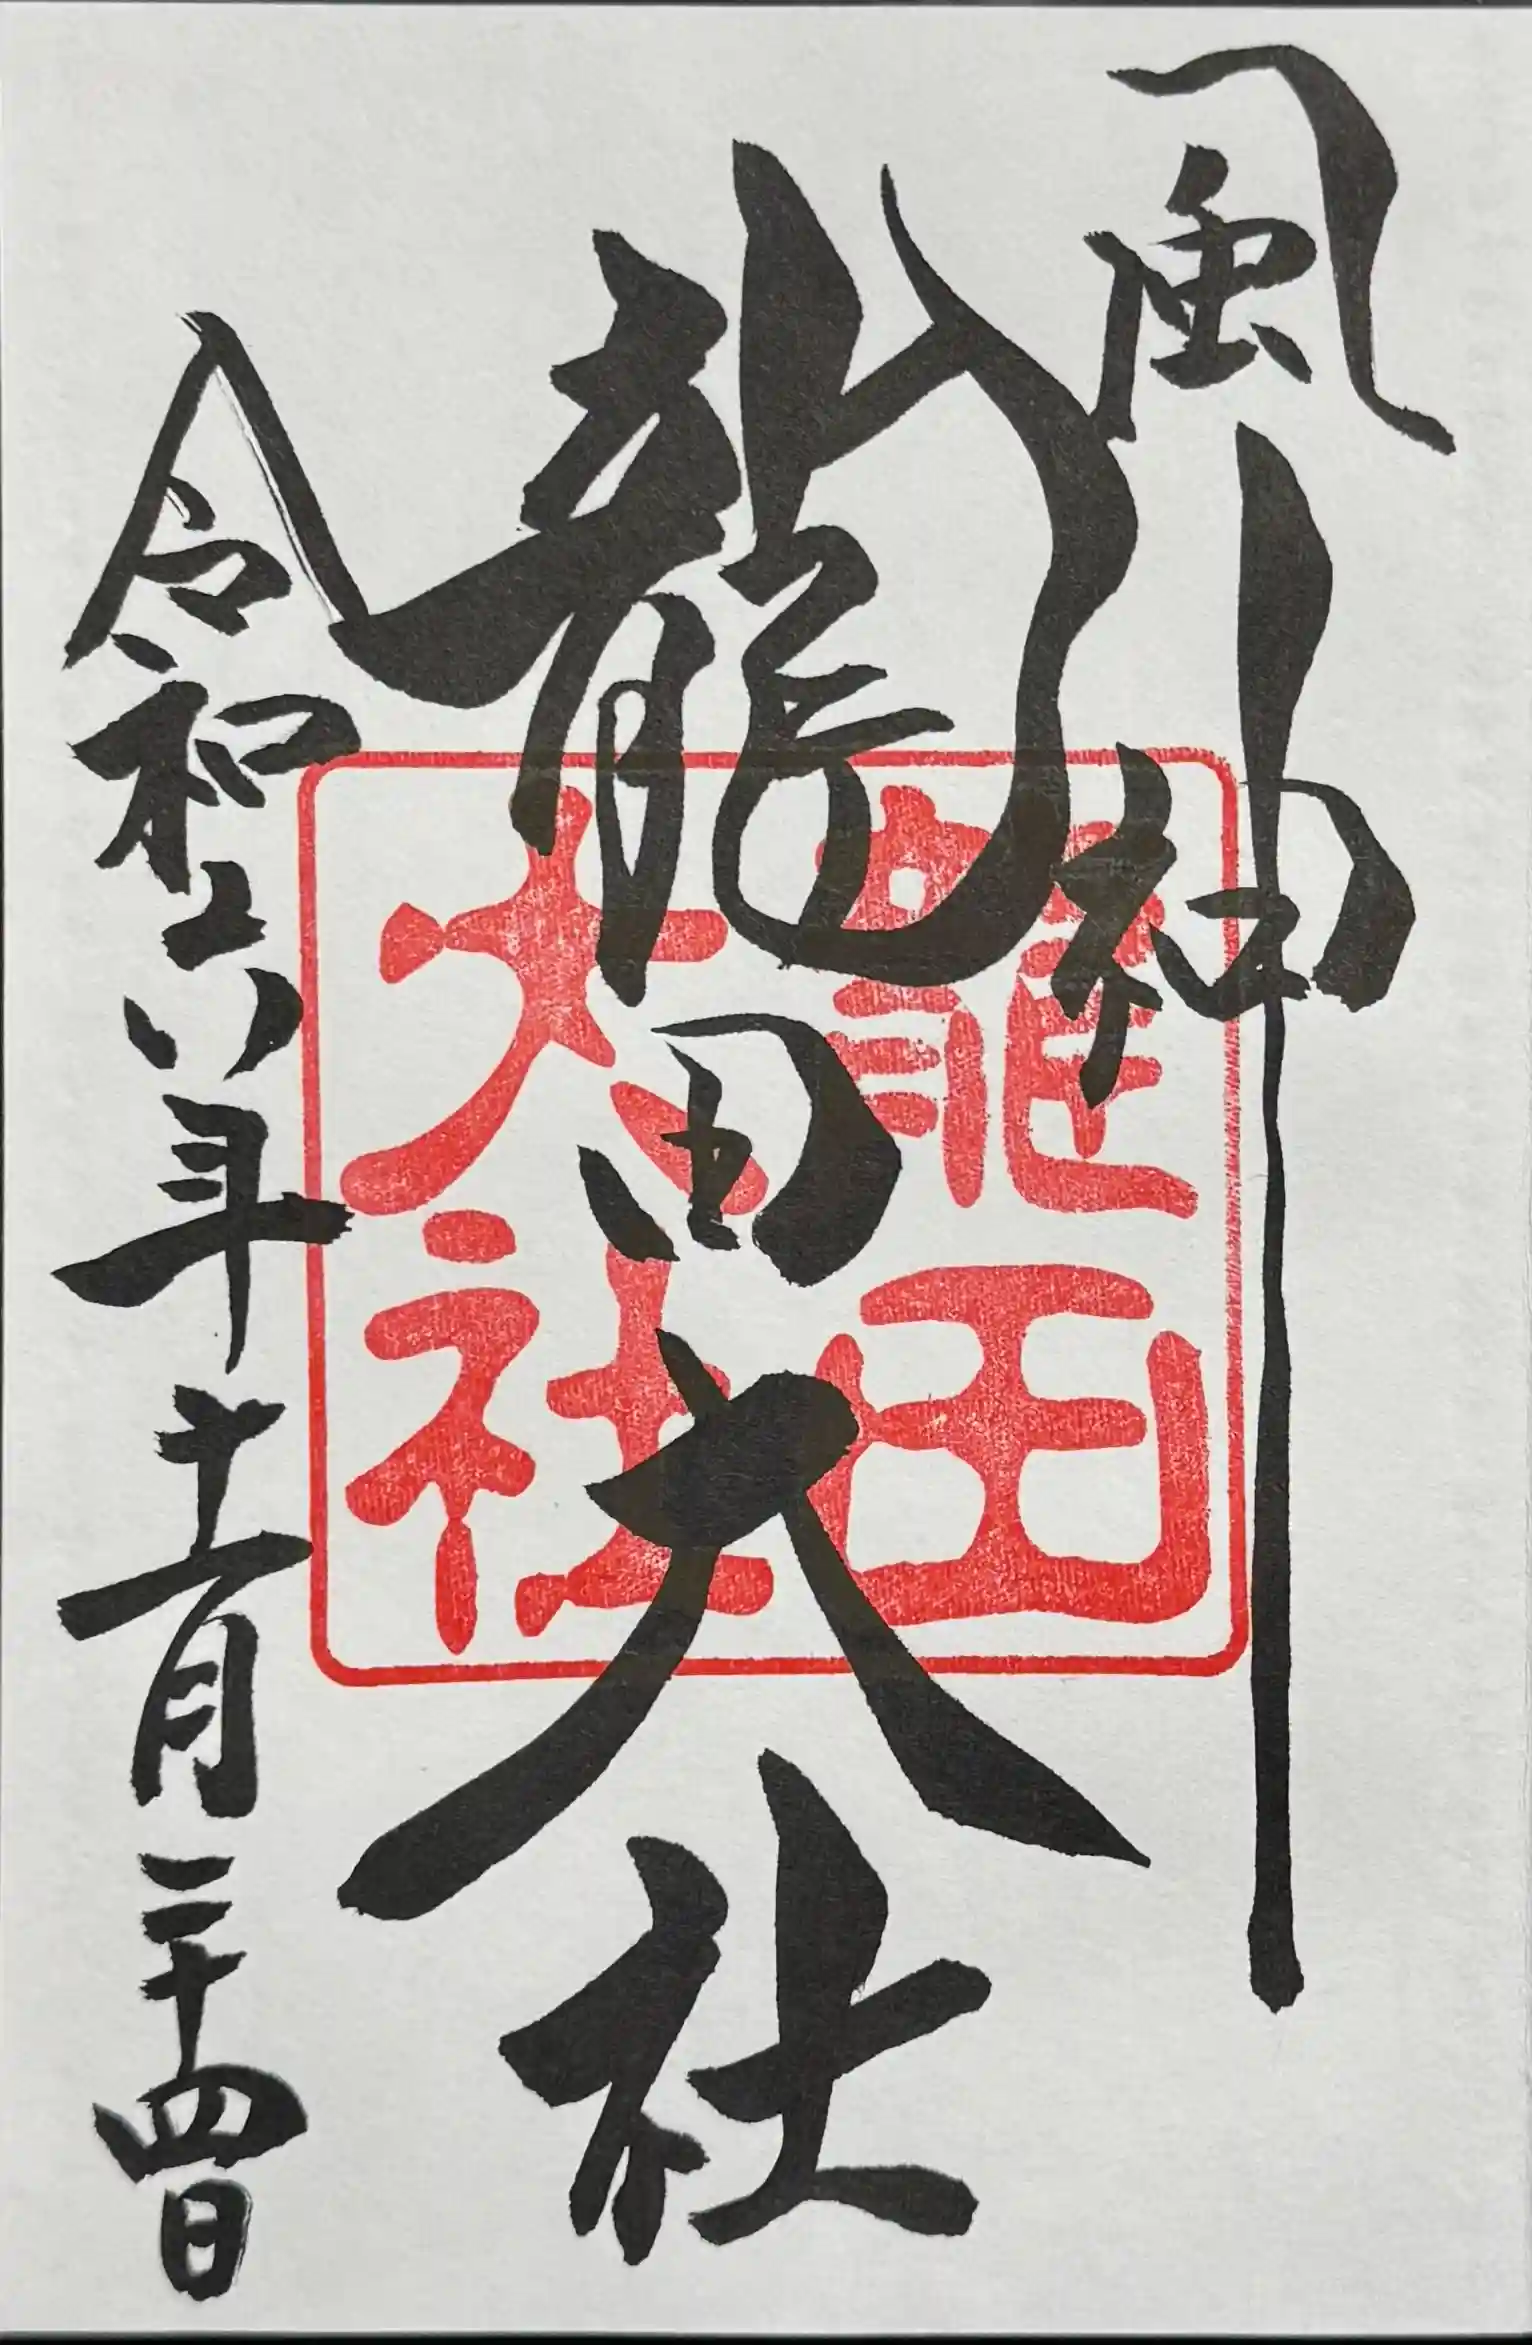 風神
龍田大社
令和六年十一月二十四日
龍田
大社